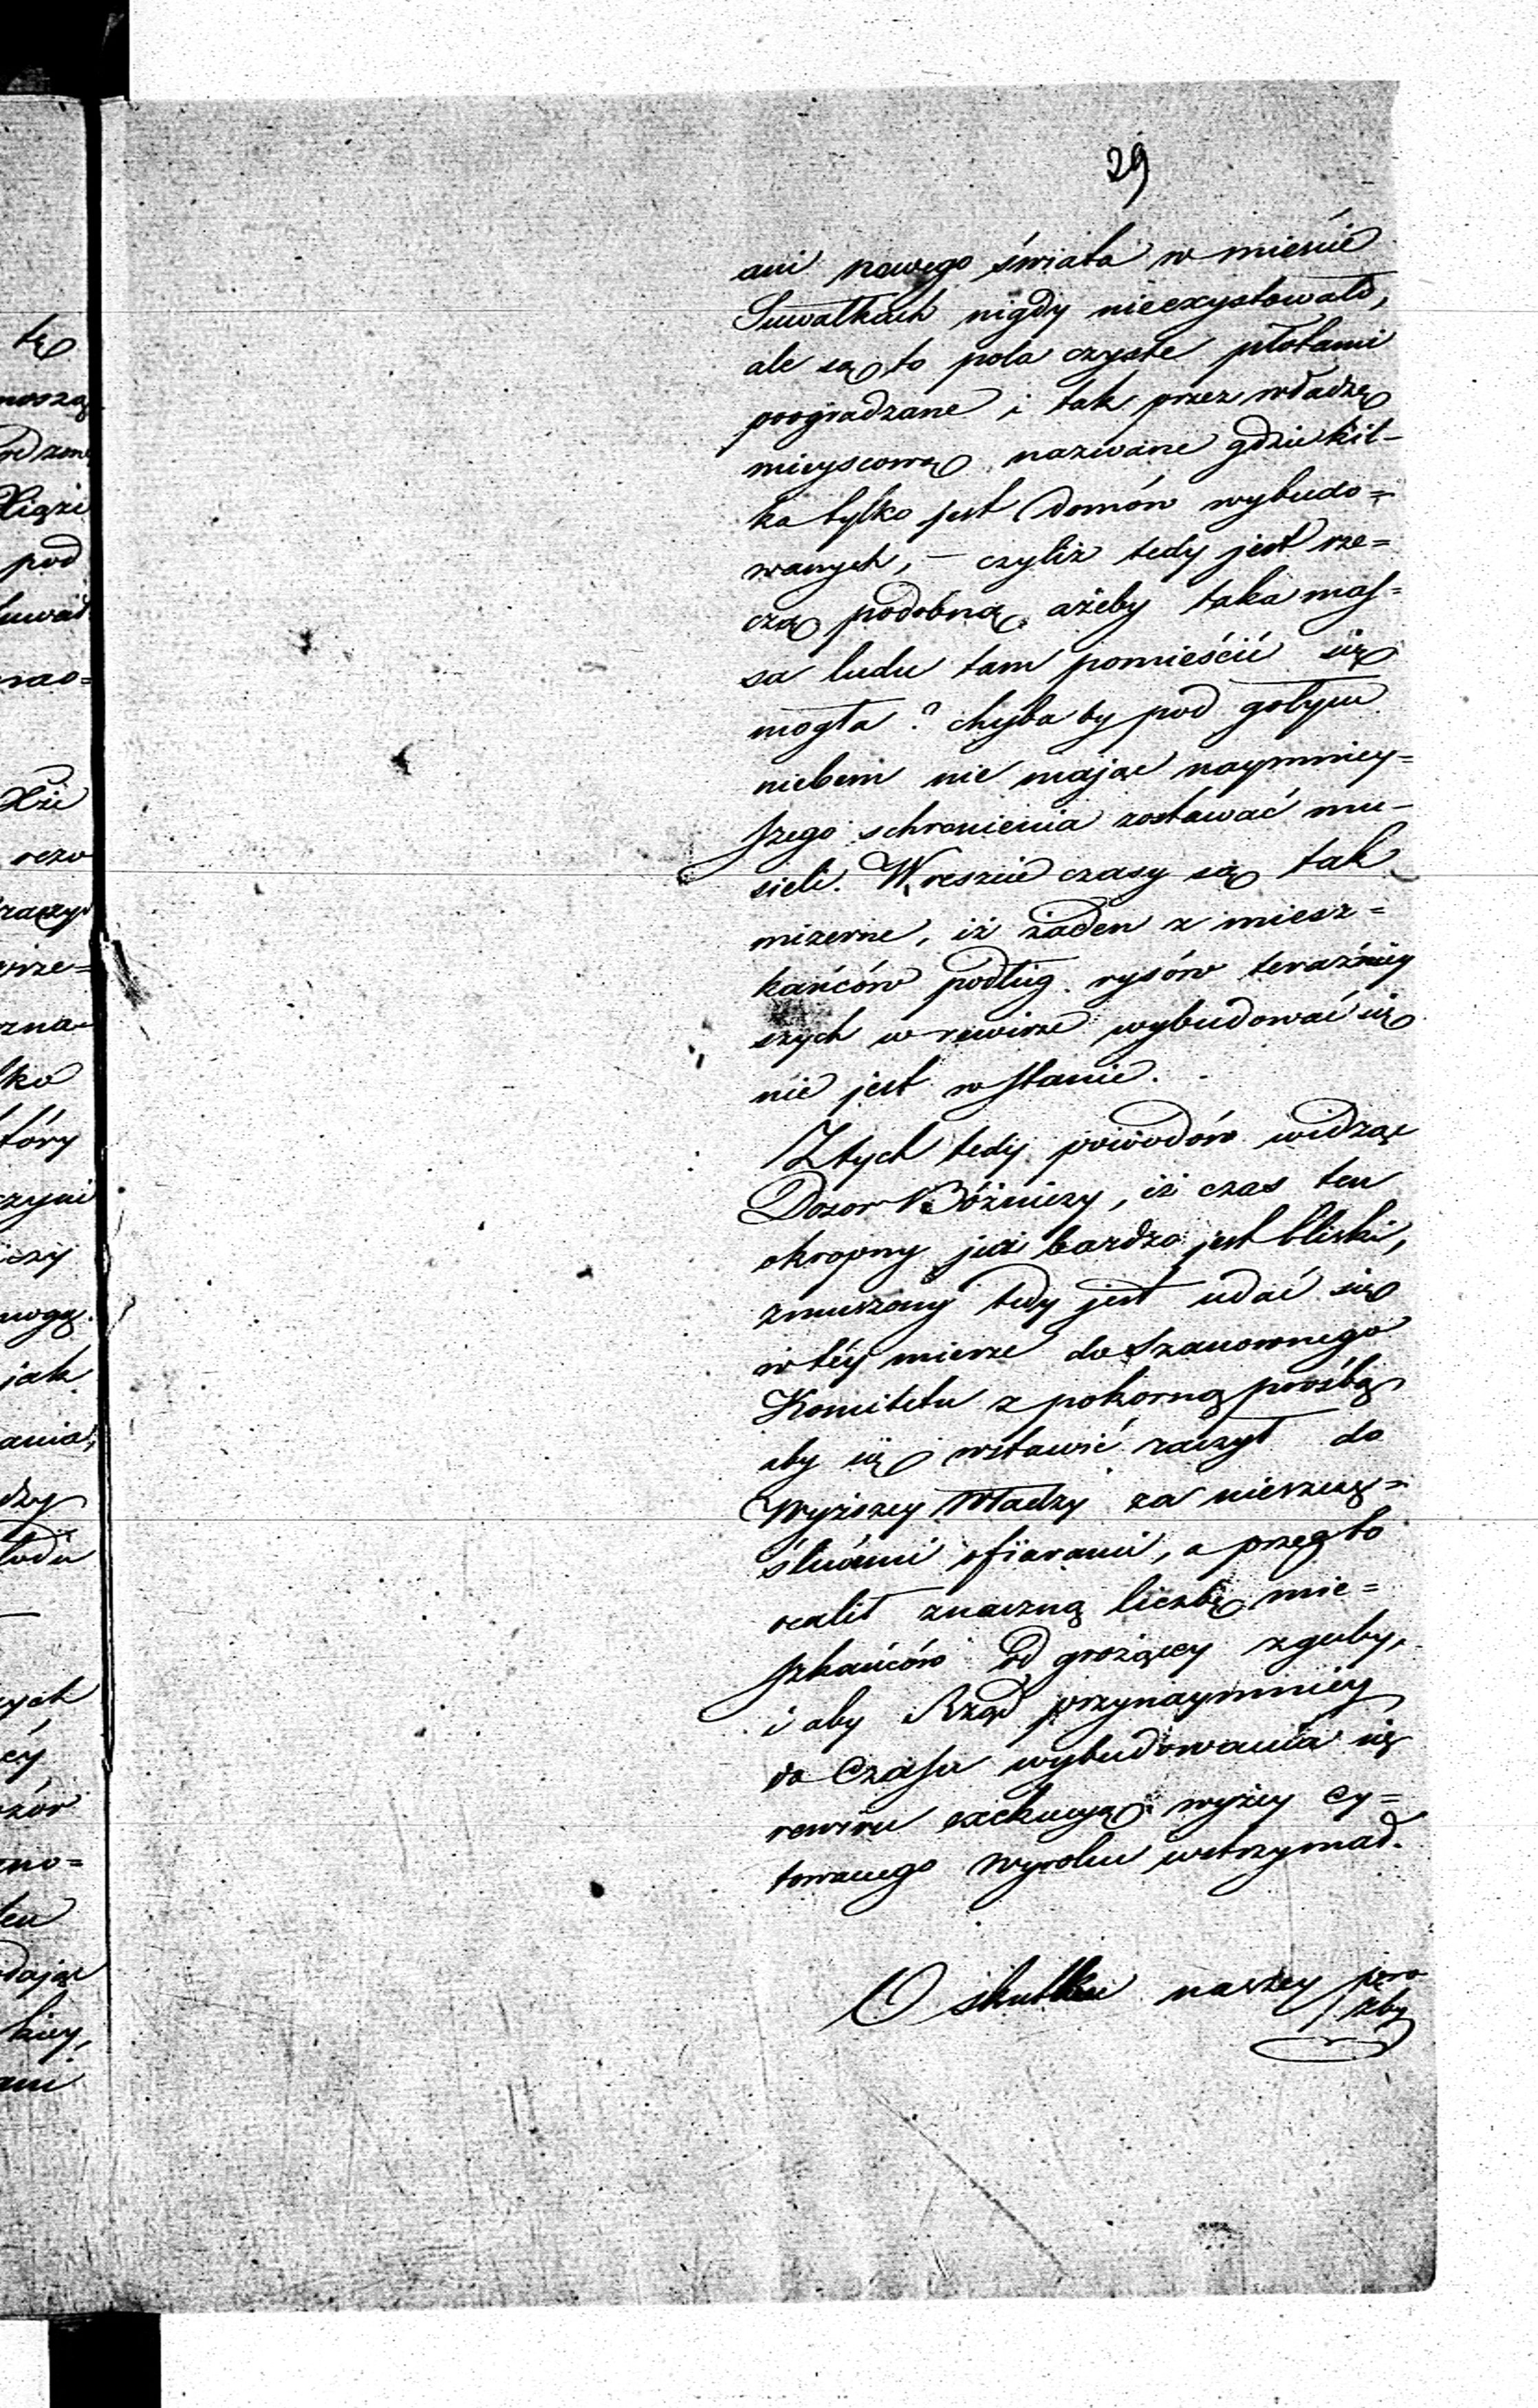 29
ani nowego świata w mieście
Suwałkach nigdy nieexystowało,
ale są to pola czyste płotami
poogradzane i tak przez władzę
mieyscową nazwane gdzie kil-
ka tylko jest domów wybudo=
wanych, – czyliż tedy jest rze=
czą podobną ażeby taka mas=
sa ludu tam pomieścić się
mogła? chyba by pod gołym
niebem nie mając naymniey=
szego schronienia zostawać mu-
sieli. Wreszcie czasy są tak
mizerne, iż żaden z miesz=
kańców podług rysów teraźniey
szych w rewirze wybudować się
nie jest w stanie.
Z tych tedy powodów widząc
Dozor Bóżniczy, iż czas ten
okropny już bardzo jest bliski,
zmuszony tedy jest udać się
w téy mierze do Szanownego
Komitetu z pokorną prośbą
aby się wstawić raczył do
Wyższey Władzy za nieszczę=
śliwémi ofiarami, a przez to
ocalił znaczną liczbę mie=
szkańców od grożącey zguby,
i aby Rząd przynaymniey
do Czasu wybudowania się
rewiru exekucyą wyżey cy=
towanego Wyroku wstrzymał.
O skutku naszey pro
źby
tę
noszą
pod
rao=
rezo
rze=
zna-
tóry
czyni
mogą.
jak
ania,
éy
zór
zno=
ten
dając
kiey,
ani